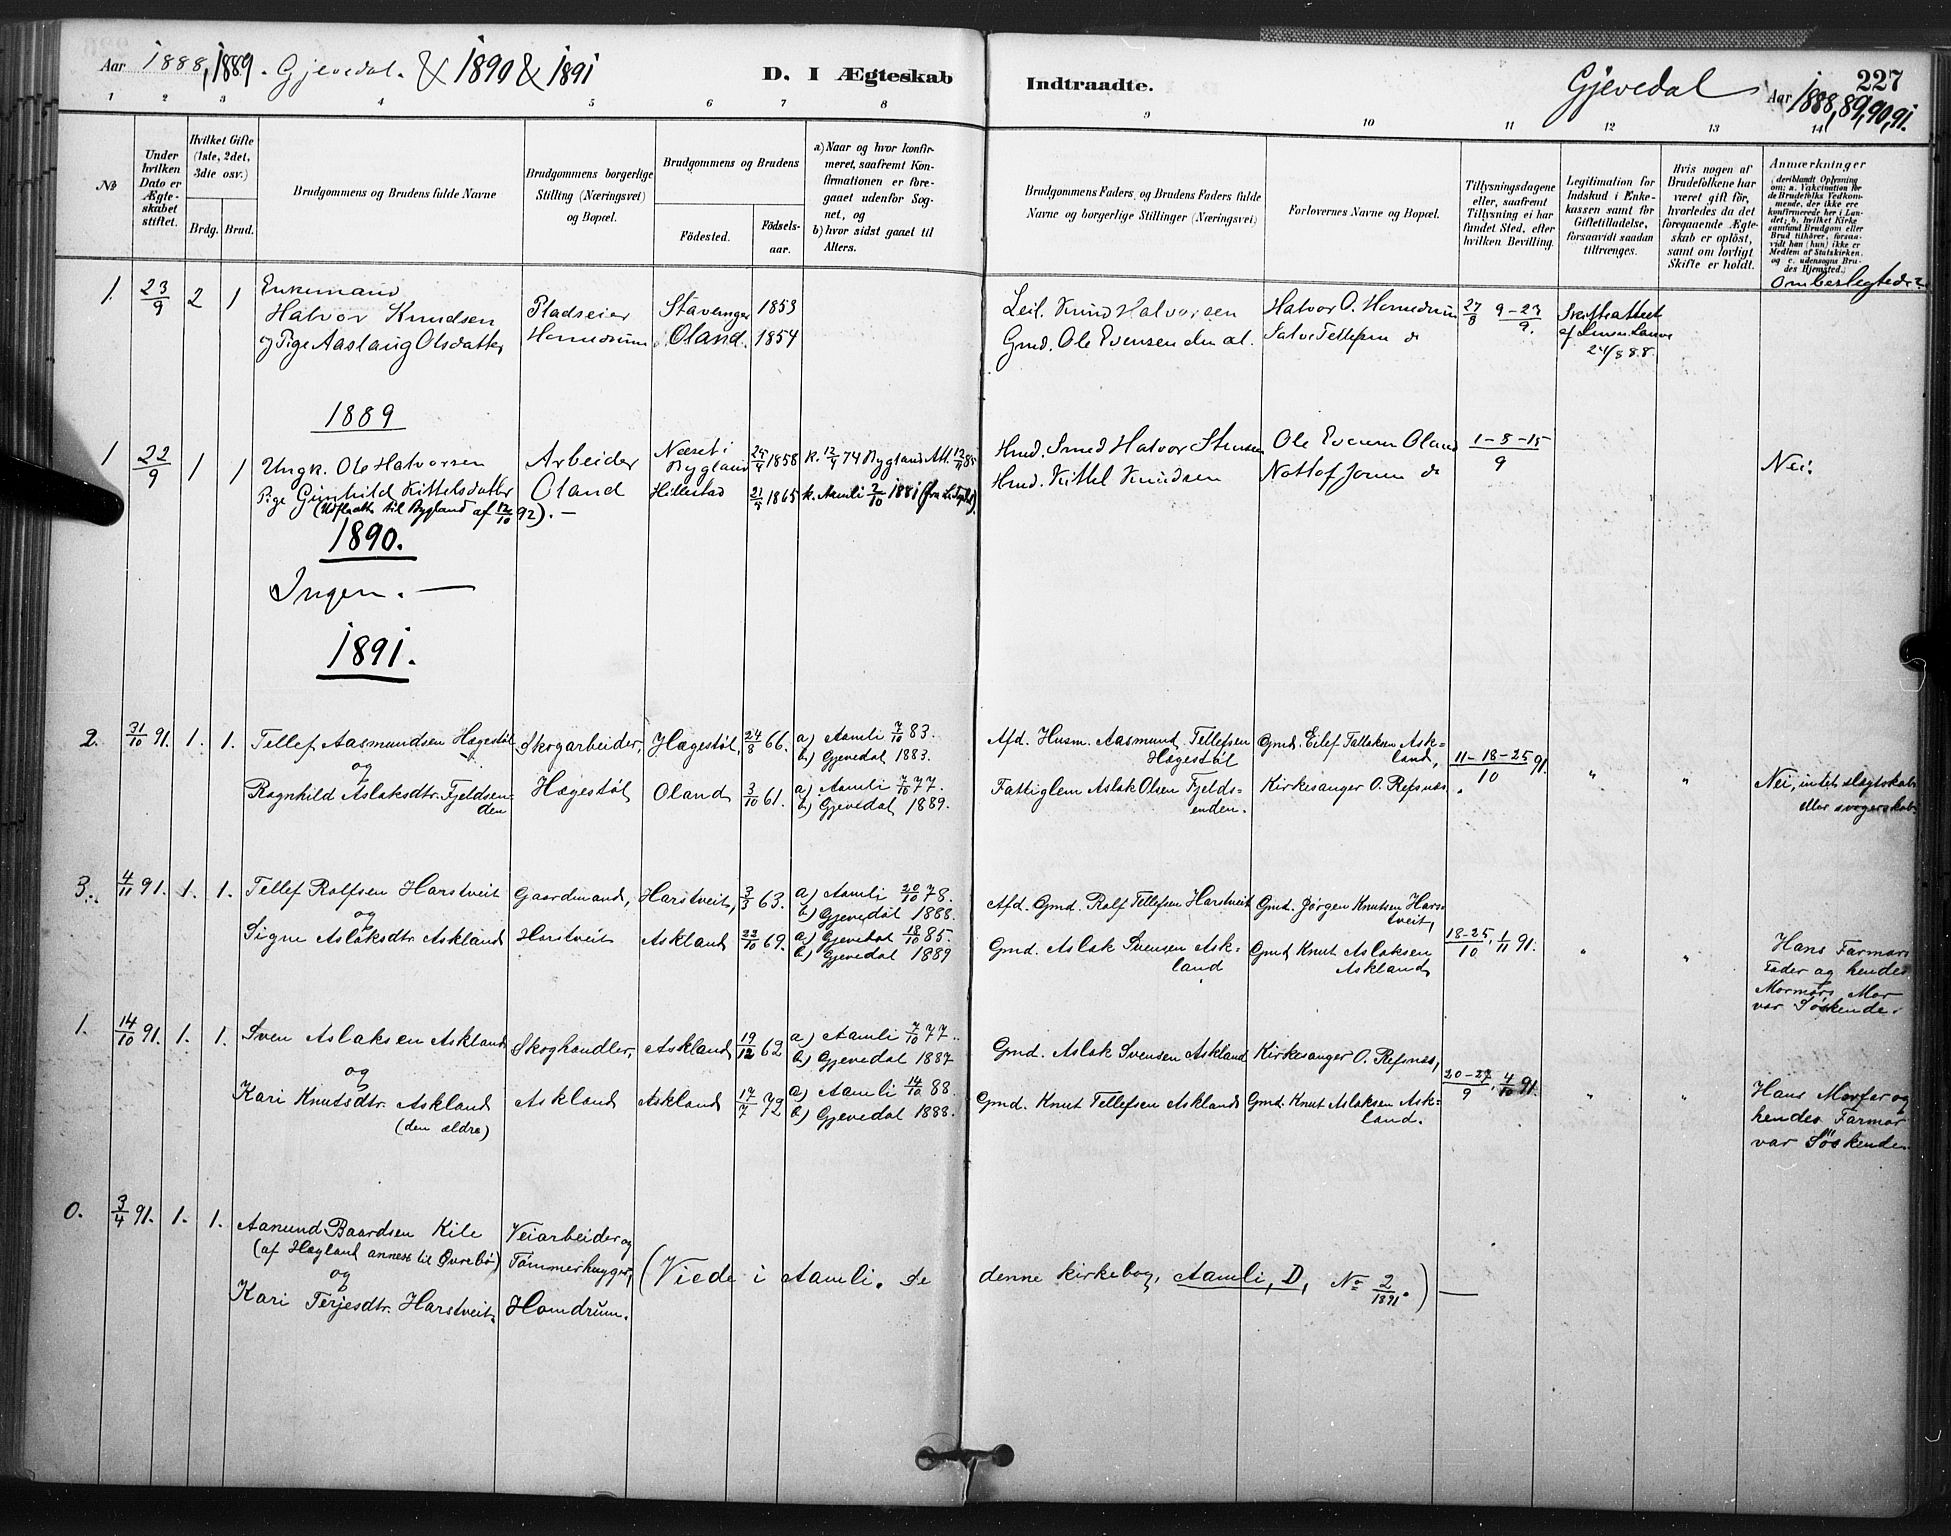 Aar 1888, 1889. Gjevedal. & 1890 & 1891
D. I Ægteskab Indtraadte.
Gjevedal Aar 1888, 89, 90, 91.
227
1 2 3 4 5 6 7 8 9 10 11 12 13 14
No
Under hvilken Dato er Ægteskabet stiftet.
Hvilket Gifte (1ste, 2det, 3die osv.)
Brdg. Brud.
Brudgommens og Brudens fulde Navne
Brudgommens borgerlige Stilling (Næringsvei) og Bopæl.
Brudgommens og Brudens
Fødested.
Fødselsaar.
a) Naar og hvor konfirmeret, saafremt Konfirmationen er foregaaet udenfor Sognet, og
b) hvor sidst gaaet til Alters.
Brudgommens Faders, og Brudens Faders fulde Navne og borgerlige Stillinger (Næringsvei)
Forlovernes Navne og Bopæl.
Tillysningsdagene eller, saafremt Tillysning ei har fundet Sted, efter hvilken Bevilling.
Legitimation for Indskud i Enkekassen samt for Giftetilladelse, forsaavidt saadan tiltrænges.
Hvis nogen af Brudefolkene har været gift før, hvorledes da det foregaaende Ægteskab er opløst, samt om lovligt Skifte er holdt.
Anmærkninger (deriblandt Oplysning om: a. Vakcination for de Brudefolks Vedkommende, der ikke ere konfirmerede her i Landet; b. hvilket Kirkesamfund Brudgom eller Brud tilhører, forsaavidt han (hun) ikke er Medlem af Statskirken, og c. udensogns Brudes Hjemsted.)
Om beslegtede?
1. 23/9 2 1 Enkemand
Halvor Knudsen Pladseier Stavanger 1853 Leil. Knud Halvorsen Halvor O. Homdrum 27/8 9-23/9. Skifteattest
og Pige Aaslaug Olsdatter Homdrum Oland. 1854 Gmd. Ole Evensen Salve Tellefsen do af Lensm.
88.
1889
1 22/9 1 1 Ungk. Ole Halvorsen Arbeider Næset i Bygland 25/4 1858 k. 12/4 74 Bygland Att. Hmd. Smed Halvor Stensen Ole Evensen Oland 1-8-15/9 Nei.
Pige Gunhild Kittelsdatter Oland Hillestad 21/5 1865 k. Aamli 2/10 1881 Hmd. Kittel Knudsen Notlof Jonsen do
(Udflyttet til Bygland af 12/10 92). -
1890.
Ingen. -
1891.
2. 31/10 91. 1. 1. Tellef Aasmundsen Hægestøl Skogarbeider, Hægestøl, 24/8 66. a) Aamli 7/10 83. b) Gjevedal 1883. Afd. Husm. Aasmund Tellefsen Hægestøl Gmd. Eilef Tallaksen Askland,
og
Ragnhild Aslaksdtr. Fjeldsenden Hægestøl Oland 3/10 61. a) Aamli 7/10 77. b) Gjevedal 1889. Fattiglem Aslak Olsen Fjeldsenden. Kirkesanger O. Refsnæs. 11-18-25/10 91. " " Nei, intet slegtskab eller svogerskab.
3. 4/11 91. 1. 1. Tellef Rolfsen Harstveit Gaardmand, Harstveit, 3/3 63. a) Aamli 20/10 78. b) Gjevedal 1888. Afd. Gmd. Rolf Tellefsen Harstveit Gmd. Jörgen Knutsen Harstveit,
og
Signe Aslaksdtr. Askland Harstveit Askland 22/10 69. a) Gjevedal 18/10 85. b) Gjevedal 1889 Gmd. Aslak Svensen Askland Gmd. Knut Aslaksen Askland 18-25/10, 1/11 91. " " Hans Farmors Fader og hendes Mormors Mor var Söskende.
1. 14/10 91. 1. 1. Sven Aslaksen Askland Skoghandler, Askland 19/12 62 a) Aamli 7/10 77. b) Gjevedal 1887 Gmd. Aslak Svensen Askland Kirkesanger O. Refsnæs,
og
Kari Knutsdtr. Askland Askland Askland 17/7 72 a) Aamli 14/10 88. b) Gjevedal 1888. Gmd. Knut Tellefsen Askland Gmd. Knut Aslaksen Askland. 20-27/9, 4/10 91. " " Hans Morfar og hendes Farmor var Söskende.
(den ældre)
0. 3/4 91. 1. 1. Aanund Baardsen Kile Veiarbeider og
(af Hægland annex til Øvrebø) Tömmerhugger, (Viede i Aamli. Se denne kirkebog, Aamli, D, No 2/1891.) -
og
Kari Terjesdtr. Harstveit. Homdrum.